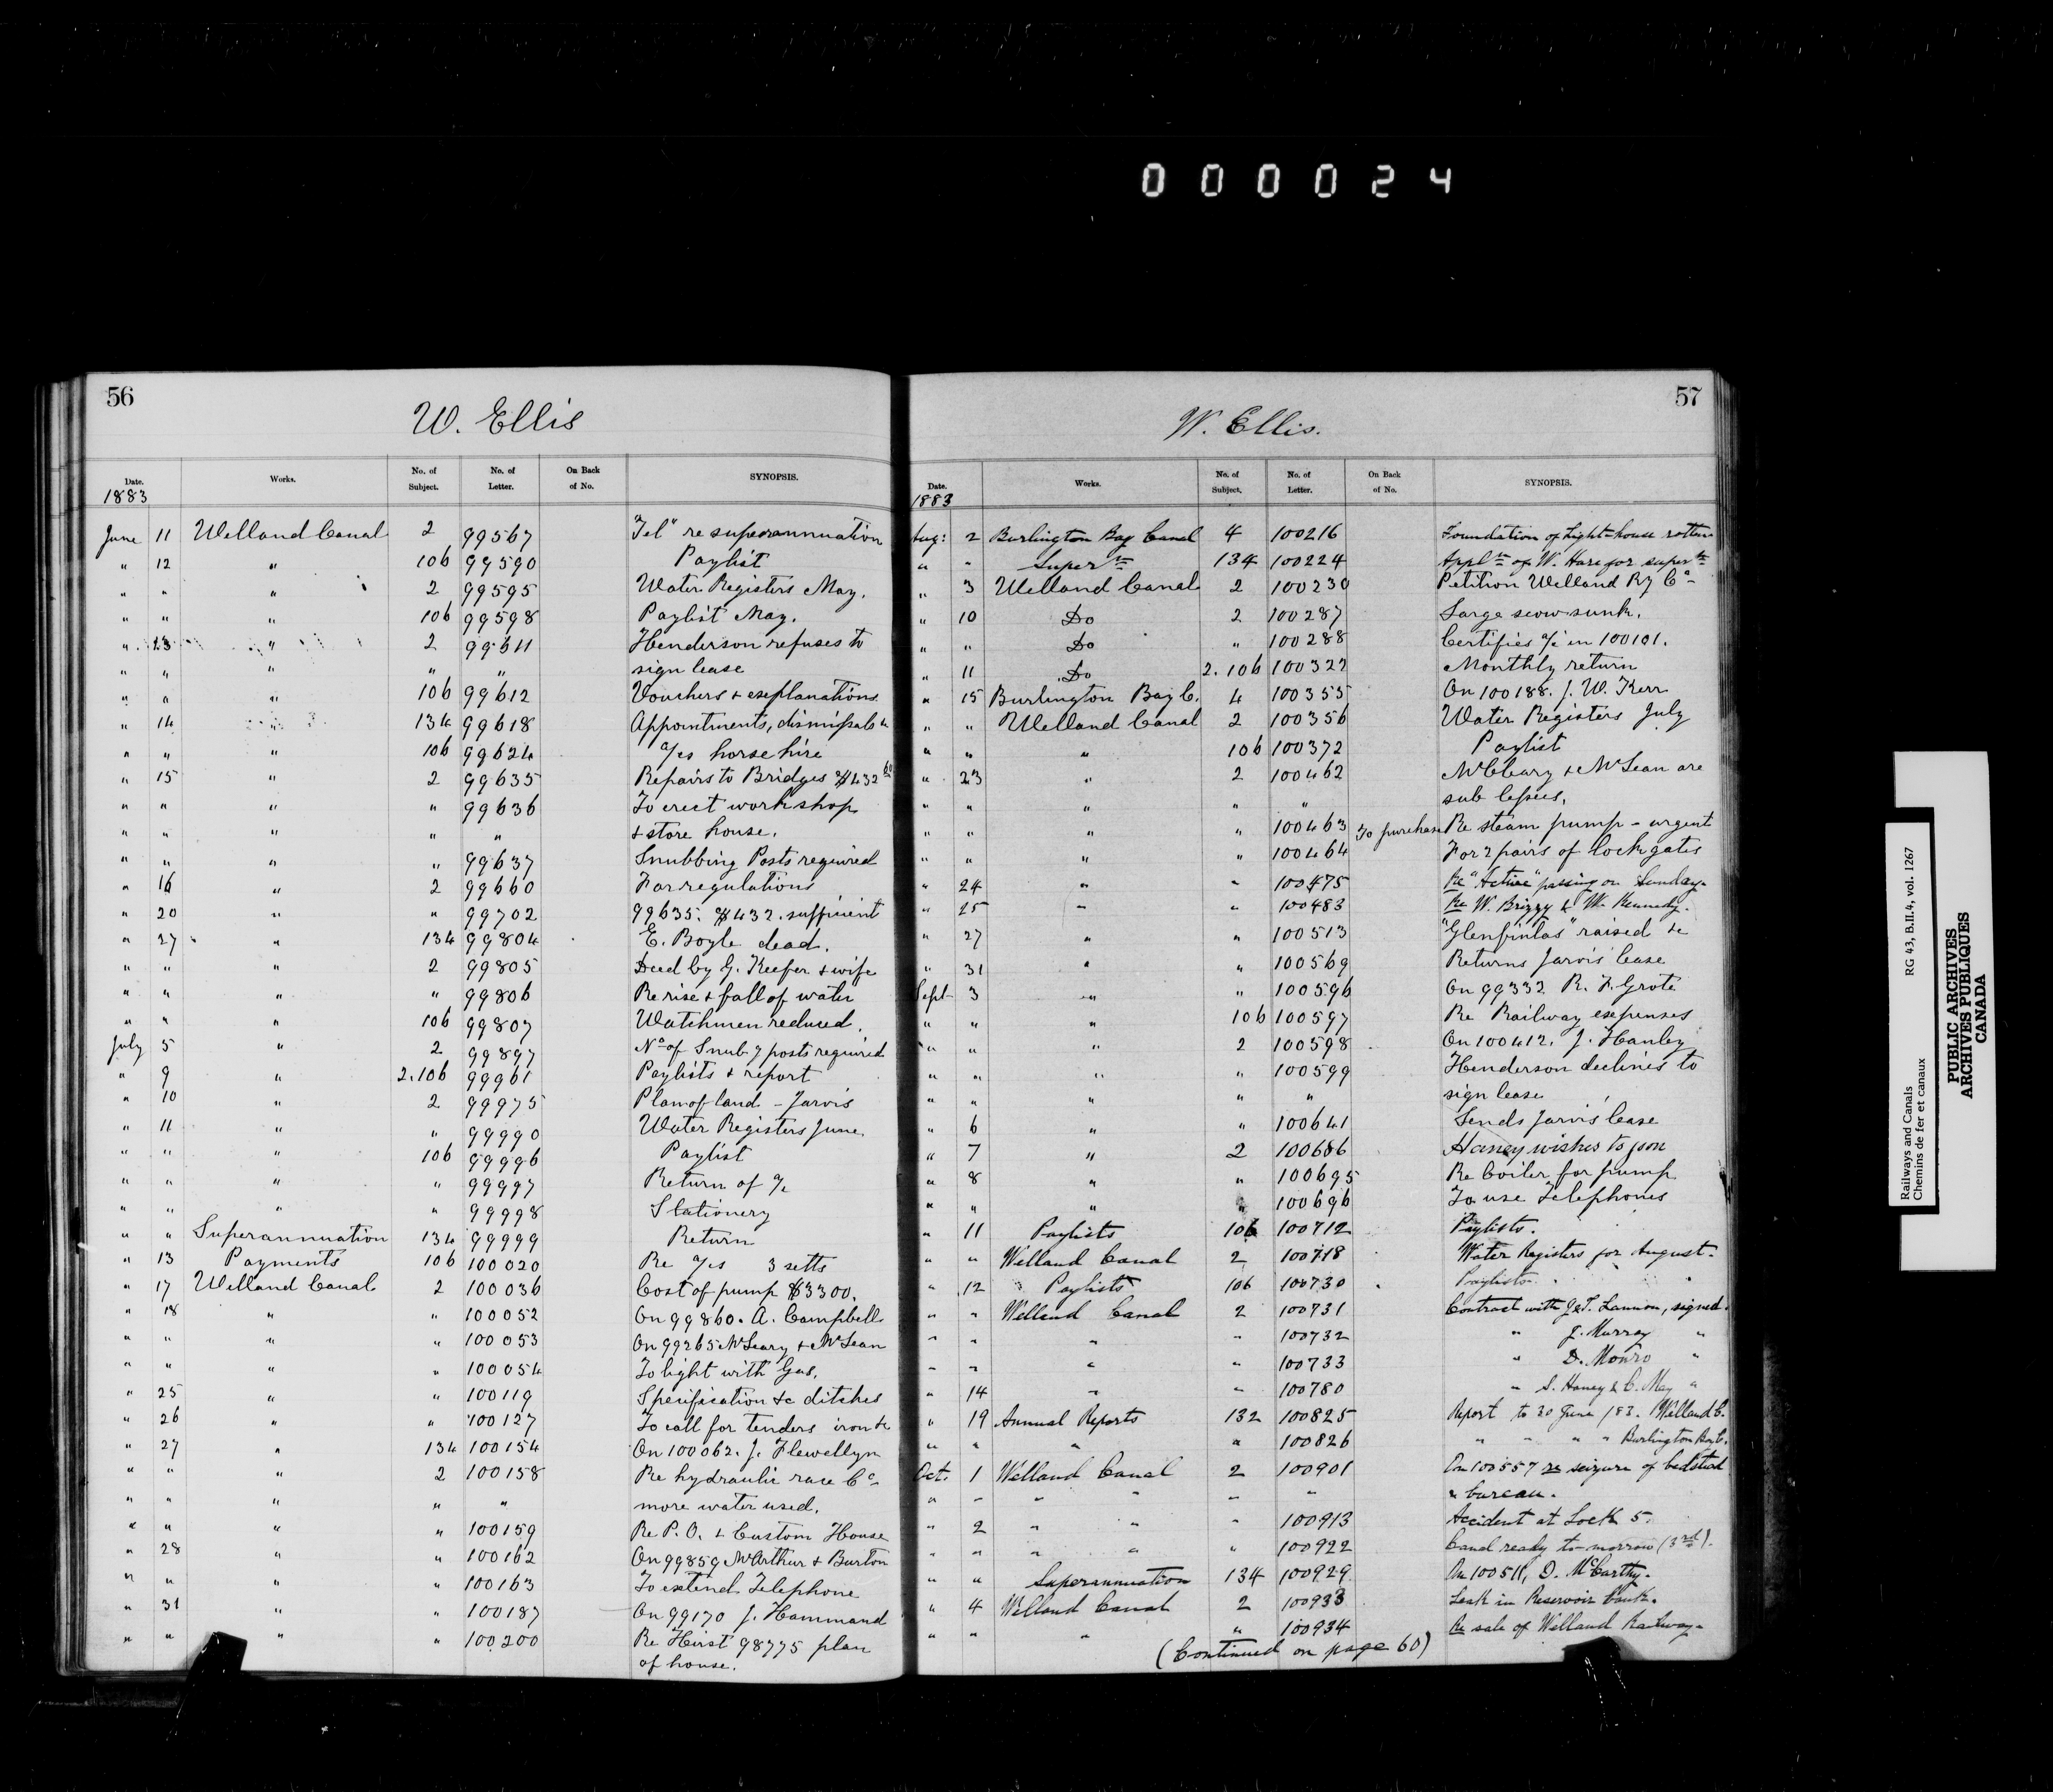 000024
56
W. Ellis
Date. Works. No. of Subject. No. of Letter. On Back of No. SYNOPSIS.
1883
June 11 Welland Canal 2 99567 "Tel" re superannuation
" 12 " 106 99590 Paylist
" " " 2 99595 Water Registers May.
" " " 106 99598 Paylist May.
" 13 " 2 99611 Henderson refuses to
" " " " " sign lease
" " 106 99612 Vouchers & explanations
" 14 134 99618 Appointments, dismissals &
" " " 106 99624 a/cs horse hire
" 15 " 2 99635 Repairs to Bridges $432 60
" " " " 99636 To erect workshop
" " " " " & store house.
" " " " 99637 Snubbing Posts required
" 16 " 2 99660 For regulations
" 20 " " 99702 99635. $432. sufficient
" 27 " 134 99804 E. Boyle dead.
" " " 2 99805 Deed by G. Keefer & wife
" " " " 99806 Re rise & fall of water
" " " 106 99807 Watchmen reduced.
July 5 " 2 99897 No of Snub'g posts required
" 9 " 2.106 99961 Paylists & report
" 10 " 2 99975 Plan of land - Jarvis
" 11 " " 99990 Water Registers June
" " " 106 99996 Paylist
" " " " 99997 Return of a/c
" " " " 99998 Stationery
" " Superannuation 134 99999 Return
" 13 Payments 106 100020 Re a/cs 3 setts
" 17 Welland Canal 2 100036 Cost of pump $3300.
" 18 " " 100052 On 99860. A. Campbell
" " " " 100053 On 99265 McLeary & McLean
" " " " 100054 To light with Gas.
" 25 " " 100119 Specification &c ditches
" 26 " " 100127 To call for tenders iron &c
" 27 " 134 100154 On 100062. J. Flewellyn
" " " 2 100158 Re hydraulic race Co
" " " " " more water used.
" " " " 100159 Re P.O. & Custom House
" 28 " " 100162 On 99859 McArthur & Burton
" " " " 100163 To extend Telephone
" 31 " " 100187 On 99170 J. Hammand
" " " " 100200 Re Hirst 98775 plan
of house.
57
W. Ellis.
Date. Works. No. of Subject. No. of Letter. On Back of No. SYNOPSIS.
1883
Aug: 2 Burlington Bay Canal 4 100216 Foundation of Light-house rotten
" " Super'n 134 100224 Appl'n of W. Hare for super'n
" 3 Welland Canal 2 100230 Petition Welland Ry Co
" 10 Do 2 100287 Large scow sunk.
" " Do " 100288 Certifies a/c in 100101.
" 11 Do 2.106 100322 Monthly return
" 15 Burlington Bay C. 4 100355 On 100188. J. W. Kerr
" " Welland Canal 2 100356 Water Registers July
" " " 106 100372 Paylist
" 23 " 2 100462 McCleary & McLean are
" " " " " sub lessees.
" " " " 100463 To purchase Re steam pump - urgent
" " " " 100464 For 2 pairs of lock gates
" 24 " " 100475 Re "Active" passing on Sunday.
" 25 " " 100483 Re W. Brizzy & W. Kennedy.
" 27 " " 100513 "Glenfinlas" raised &c
" 31 " " 100569 Returns Jarvis lease
Sept 3 " " 100596 On 99332 R. F. Grote
" " " 106 100597 Re Railway expenses
" " " 2 100598 On 100412. J. Hanley
" " " " 100599 Henderson declines to
" " " " " sign lease
" 6 " " 100641 Sends Jarvis' lease
" 7 " 2 100686 Haney wishes to join
" 8 " " 100695 Re boiler for pump
" " " " 100696 To use Telephones
" 11 Paylists 106 100712 Paylists.
" " Welland Canal 2 100718 Water Registers for August.
" 12 Paylists 106 100730 Paylists "
" " Welland Canal 2 100731 Contract with J&T. Lannon, signed.
" " " " 100732 " J. Murray "
" " " " 100733 " D. Monro "
" 14 " " 100780 " S. Haney & C. May "
" 19 Annual Reports 132 100825 Report to 30 June /83. Welland C.
" " " " 100826 " " " " Burlington Bay C.
Oct. 1 Welland Canal 2 100901 On 100557 re seizure of bedstead
" " " " " " & bureau.
" 2 " " " 100913 Accident at Lock 5.
" " " " " 100922 Canal ready to-morrow (3rd).
" " Superannuation 134 100929 On 100511, D. McCarthy.
" 4 Welland Canal 2 100933 Leak in Reservoir bank.
" " " " 100934 Re sale of Welland Railway.
(Continued on page 60)
Railways and Canals RG 43, B.II.4, vol. 1267
Chemins de fer et canaux
PUBLIC ARCHIVES
ARCHIVES PUBLIQUES
CANADA